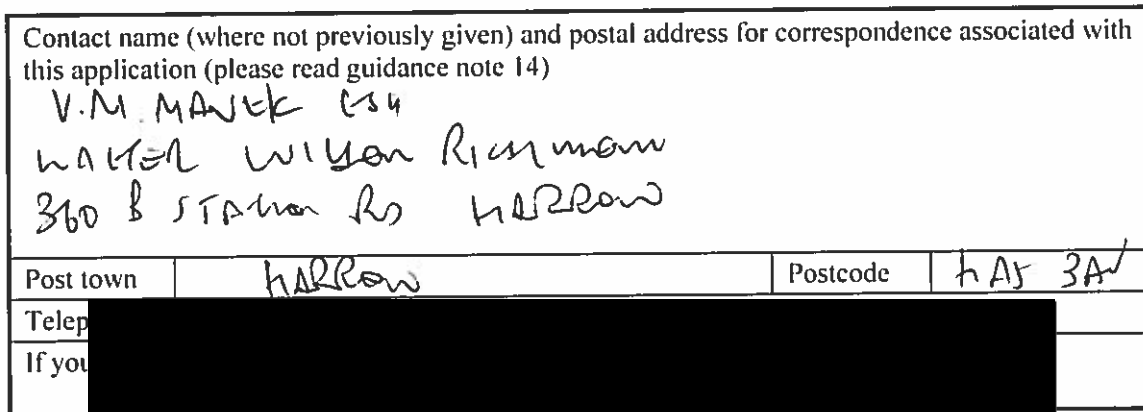 Contact name (where not previously given) and postal address for correspondence associated with
this application (please read guidance note 14)
V.M. MANEK ESQ
WALTER WILSON RICHMOND
360 B STATION RD HARROW
Post town HARROW Postcode HA1
Telep
If you